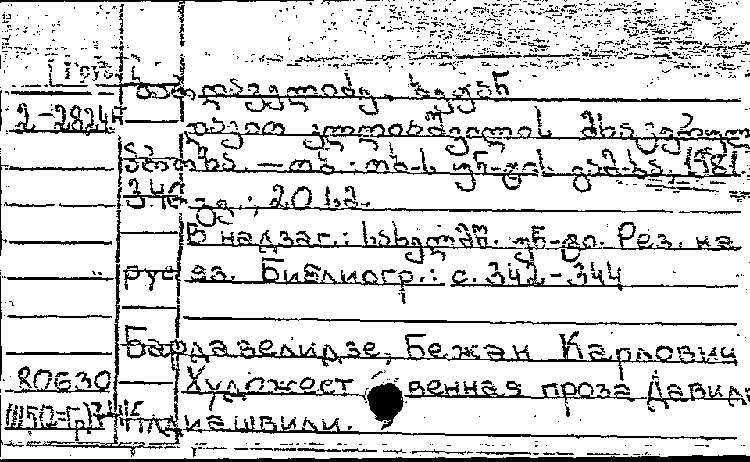 [Груз.]
ბარდაველიძე, ბეჟან
2-2824
დავით კლდიაშვილის მხატვრული
პროზა. — თბ.: თბ-ს უნ-ტის გამ-ბა, 1981.
345 გვ.; 20 სმ.
В надзаг.: სახელმწ. უნ-ტი. Рез. на
рус яз. Библиогр.: с. 342-344
Бардавелидзе, Бежан Карлович
80630 Художественная проза Давида
Клдиашвили.